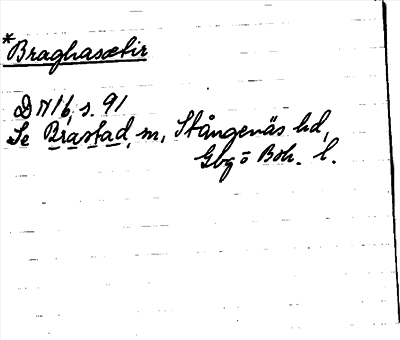 *Braghasætir
DN 16, s. 91
Se Brastad, m, Stångenäs hd,
Gbg o Boh. l.